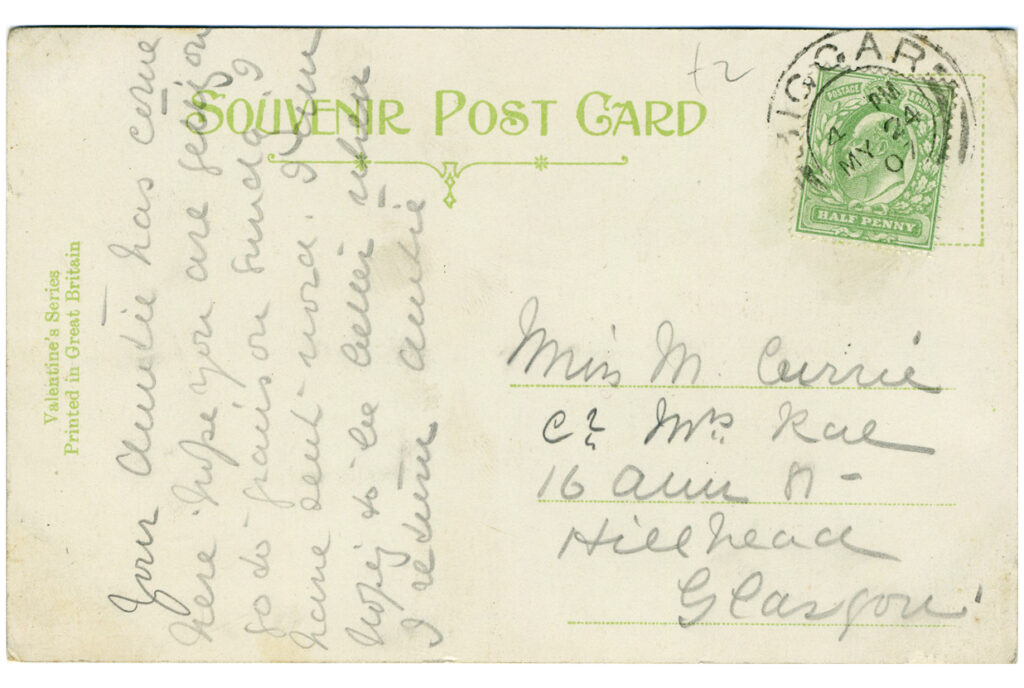 SOUVENIR POST CARD
Valentine's Series
Printed in Great Britain
BIGGAR
4 PM
MY 24
07
POSTAGE
HALF PENNY
£2
Your auntie has come
here hope you are geting on
go to on I
have sent I am
to be better when
I return auntie
Miss M. Currie
c/o Mrs Rae
16 Ann St
Hillhead
Glasgow